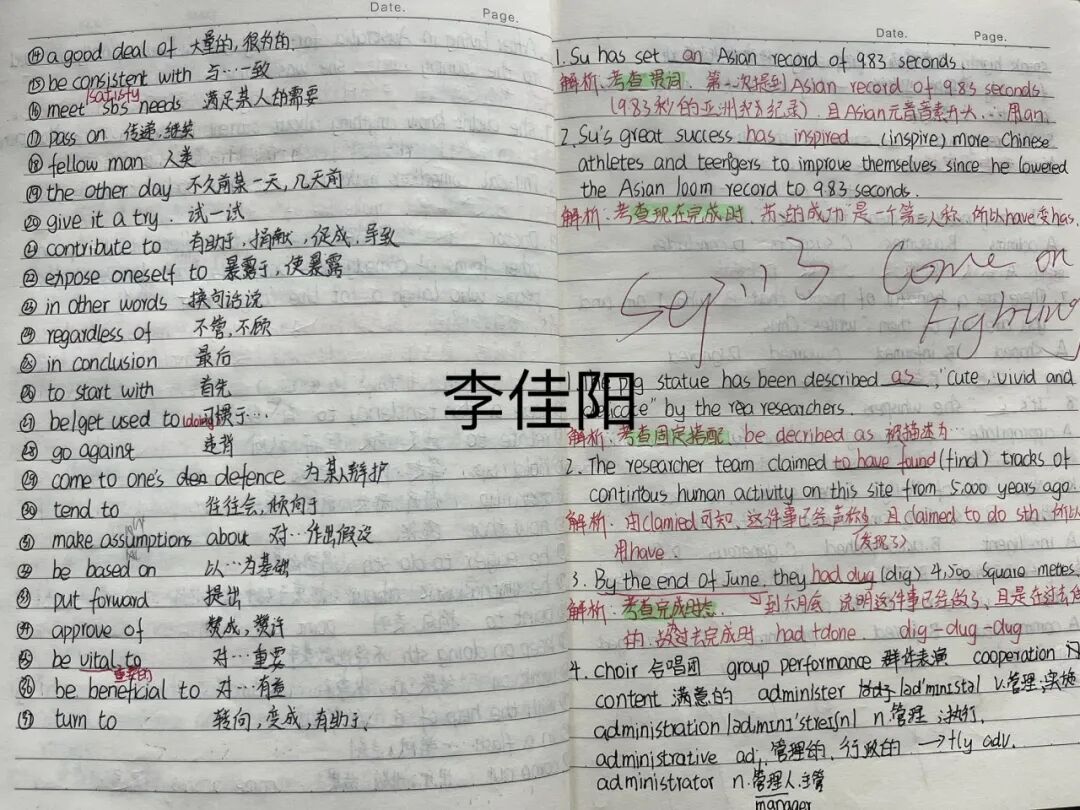 Date. Page.
⑭ a good deal of 大量的,很多的
⑮ be consistent with 与…一致
⑯ meet/satisfy sb's needs 满足某人的需要
⑰ pass on 传递,继续
⑱ fellow man 人类
⑲ the other day 不久前某一天,几天前
⑳ give it a try. 试一试
㉑ contribute to 有助于,捐献,促成,导致
㉒ expose oneself to 暴露于,使暴露
㉓ in other words 换句话说
㉔ regardless of 不管,不顾
㉕ in conclusion 最后
㉖ to start with 首先
㉗ be/get used to (doing) 习惯于…
㉘ go againt 违背
㉙ come to one's defence 为某人辩护
㉚ tend to 往往会,倾向于
㉛ make assumptions about 对…作出假设
㉜ be based on 以…为基础
㉝ put forward 提出
㉞ approve of 赞成,赞许
㉟ be vital to 对…重要
重要的
㊱ be beneficial to 对…有益
㊲ turn to 转向,变成,有助于,
Date. Page.
1. Su has set an Asian record of 9.83 seconds.
解析:考查冠词. 第一次提到Asian record of 9.83 seconds
(9.83秒的亚洲纪录) 且Asian元音音素开头∴用an.
2. Su's great success has inspired (inspire) more Chinese
athletes and teengers to improve themselves since he lowered
the Asian 100m record to 9.83 seconds.
解析:考查现在完成时 苏的成功"是一个第三人称,所以have变has.
Sep 13 Come on
Fighting
李佳阳
1. The pig statue has been described as "cute, vivid and
delicate" by the researchers.
解析:考查固定搭配 be decribed as 被描述为…
2. The researcher team claimed to have found (find) tracks of
continous human activity on this site from 5,000 years ago
解析:由clamied可知,这件事已经声称,且claimed to do sth,所以
用have (发现了)
3. By the end of June, they had dug (dig) 4,500 square metes.
解析:考查完成时态 到六月会 说明这件事已经做了,且是在过去
的,故过去完成时 had +done. dig-dug-dug
4. choir 合唱团 group performance 群体表演 cooperation
content 满意的 administer |əd'mɪnɪstə| v.管理,实施
administration |ədmɪnɪ'streɪʃn| n.管理 执行.
administrative adj.管理的,行政的 → +ly adv.
administrator n.管理人.主管
manager